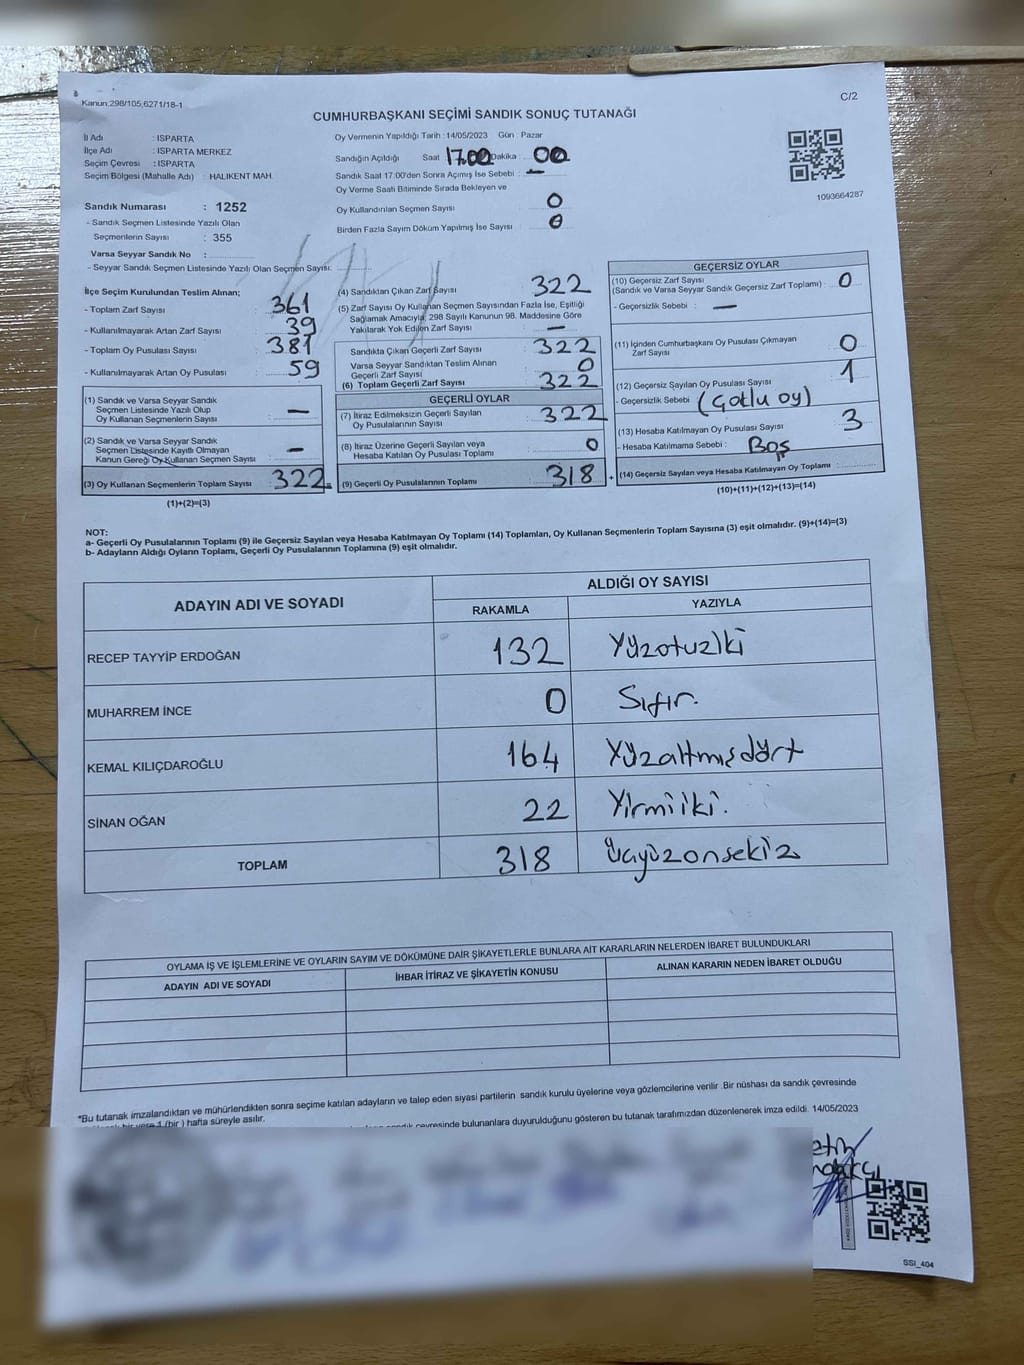 Kanun:298/105,6271/18-1
C/2
CUMHURBAŞKANI SEÇİMİ SANDIK SONUÇ TUTANAĞI
İl Adı : ISPARTA
İlçe Adı : ISPARTA MERKEZ
Seçim Çevresi : ISPARTA
Seçim Bölgesi (Mahalle Adı) : HALIKENT MAH.
Sandık Numarası : 1252
- Sandık Seçmen Listesinde Yazılı Olan
Seçmenlerin Sayısı : 355
Varsa Seyyar Sandık No :
- Seyyar Sandık Seçmen Listesinde Yazılı Olan Seçmen Sayısı:
Oy Vermenin Yapıldığı Tarih : 14/05/2023 Gün : Pazar
Sandığın Açıldığı Saat 17.00 Dakika : 00
Sandık Saat 17:00'den Sonra Açımış İse Sebebi : —
Oy Verme Saati Bitiminde Sırada Bekleyen ve
Oy Kullandırılan Seçmen Sayısı 0
Birden Fazla Sayım Döküm Yapılmış İse Sayısı : 0
1093664287
İlçe Seçim Kurulundan Teslim Alınan;
- Toplam Zarf Sayısı : 361
- Kullanılmayarak Artan Zarf Sayısı : 39
- Toplam Oy Pusulası Sayısı : 381
- Kullanılmayarak Artan Oy Pusulası : 59
(1) Sandık ve Varsa Seyyar Sandık
Seçmen Listesinde Yazılı Olup
Oy Kullanan Seçmenlerin Sayısı : —
(2) Sandık ve Varsa Seyyar Sandık
Seçmen Listesinde Kayıtlı Olmayan
Kanun Gereği Oy Kullanan Seçmen Sayısı : —
(3) Oy Kullanan Seçmenlerin Toplam Sayısı : 322 =
(1)+(2)=(3)
(4) Sandıktan Çıkan Zarf Sayısı : 322
(5) Zarf Sayısı Oy Kullanan Seçmen Sayısından Fazla İse, Eşitliği
Sağlamak Amacıyla; 298 Sayılı Kanunun 98. Maddesine Göre
Yakılarak Yok Edilen Zarf Sayısı : —
Sandıkta Çıkan Geçerli Zarf Sayısı : 322
Varsa Seyyar Sandıktan Teslim Alınan
Geçerli Zarf Sayısı : 0
(6) Toplam Geçerli Zarf Sayısı : 322
GEÇERLİ OYLAR
(7) İtiraz Edilmeksizin Geçerli Sayılan
Oy Pusulalarının Sayısı : 322
(8) İtiraz Üzerine Geçerli Sayılan veya
Hesaba Katılan Oy Pusulası Toplamı : 0
(9) Geçerli Oy Pusulalarının Toplamı : 318 +
GEÇERSİZ OYLAR
(10) Geçersiz Zarf Sayısı
(Sandık ve Varsa Seyyar Sandık Geçersiz Zarf Toplamı) : 0
- Geçersizlik Sebebi : —
(11) İçinden Cumhurbaşkanı Oy Pusulası Çıkmayan
Zarf Sayısı : 0
(12) Geçersiz Sayılan Oy Pusulası Sayısı : 1
- Geçersizlik Sebebi : (Çatlu oy)
(13) Hesaba Katılmayan Oy Pusulası Sayısı : 3
- Hesaba Katılmama Sebebi : Boş
(14) Geçersiz Sayılan veya Hesaba Katılmayan Oy Toplamı :
(10)+(11)+(12)+(13)=(14)
NOT:
a- Geçerli Oy Pusulalarının Toplamı (9) ile Geçersiz Sayılan veya Hesaba Katılmayan Oy Toplamı (14) Toplamları, Oy Kullanan Seçmenlerin Toplam Sayısına (3) eşit olmalıdır. (9)+(14)=(3)
b- Adayların Aldığı Oyların Toplamı, Geçerli Oy Pusulalarının Toplamına (9) eşit olmalıdır.
ADAYIN ADI VE SOYADI
ALDIĞI OY SAYISI
RAKAMLA YAZIYLA
RECEP TAYYİP ERDOĞAN 132 Yüzotuziki
MUHARREM İNCE 0 Sıfır.
KEMAL KILIÇDAROĞLU 164 Yüzaltmışdört
SİNAN OĞAN 22 Yirmiiki.
TOPLAM 318 Üçyüzonsekiz
OYLAMA İŞ VE İŞLEMLERİNE VE OYLARIN SAYIM VE DÖKÜMÜNE DAİR ŞİKAYETLERLE BUNLARA AİT KARARLARIN NELERDEN İBARET BULUNDUKLARI
ADAYIN ADI VE SOYADI İHBAR İTİRAZ VE ŞİKAYETİN KONUSU ALINAN KARARIN NEDEN İBARET OLDUĞU
*Bu tutanak imzalandıktan ve mühürlendikten sonra seçime katılan adayların ve talep eden siyasi partilerin sandık kurulu üyelerine veya gözlemcilerine verilir .Bir nüshası da sandık çevresinde
1 (bir ) hafta süreyle asılır.
sandık çevresinde bulunanlara duyurulduğunu gösteren bu tutanak tarafımızdan düzenlenerek imza edildi. 14/05/2023
SSI_404